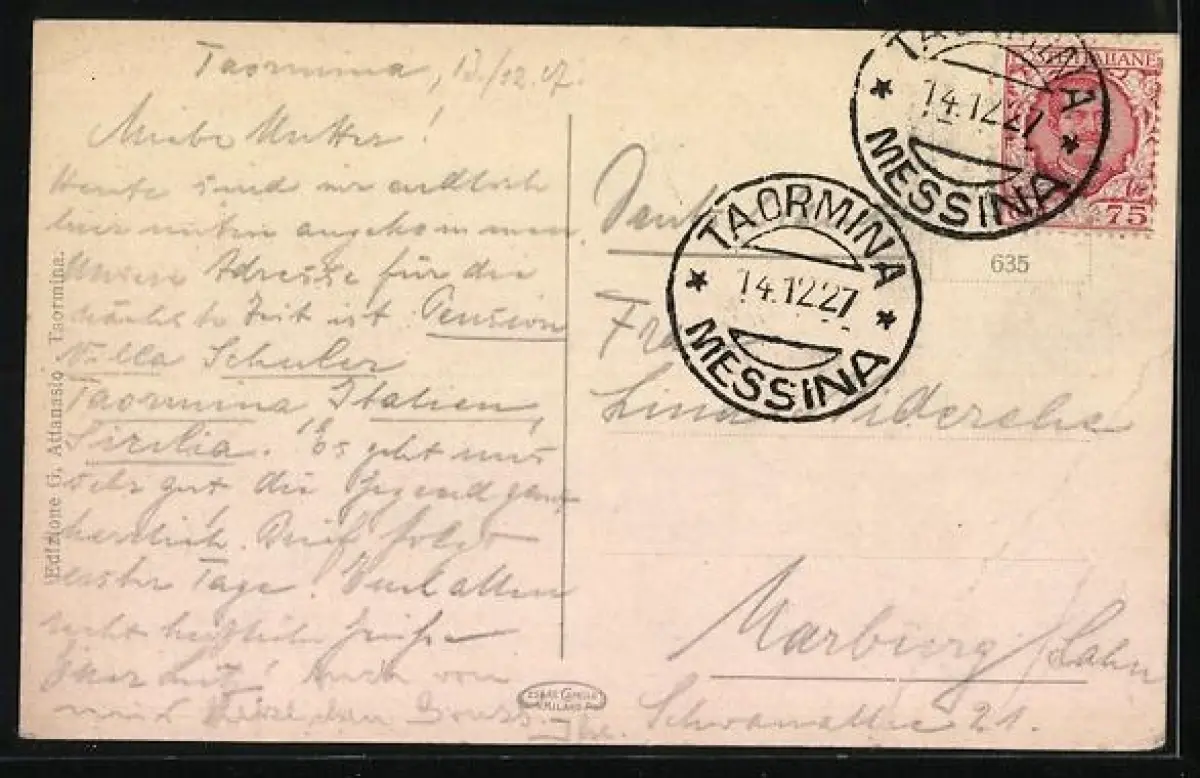 Taormina, 13./12.27.
Liebe Mutter!
Heute sind wir endlich
hier angekommen.
Unsere Adresse für die
nächste Zeit ist: Pension
Villa Schuler
Taormina, Italien,
Sizilia. Es geht uns
sehr gut, die Gegend ganz
herrlich. Brief folgt
Tage. Euch allen
recht herzliche Grüße
Auch von
mir
Edizione G. Attanasio - Taormina.
CESARE CAPELLO
MILANO
POSTE ITALIANE
75
TAORMINA
14.12.27
MESSINA
TAORMINA
14.12.27
MESSINA
635
Lina
Marburg/Lahn
Schwanallee 21.